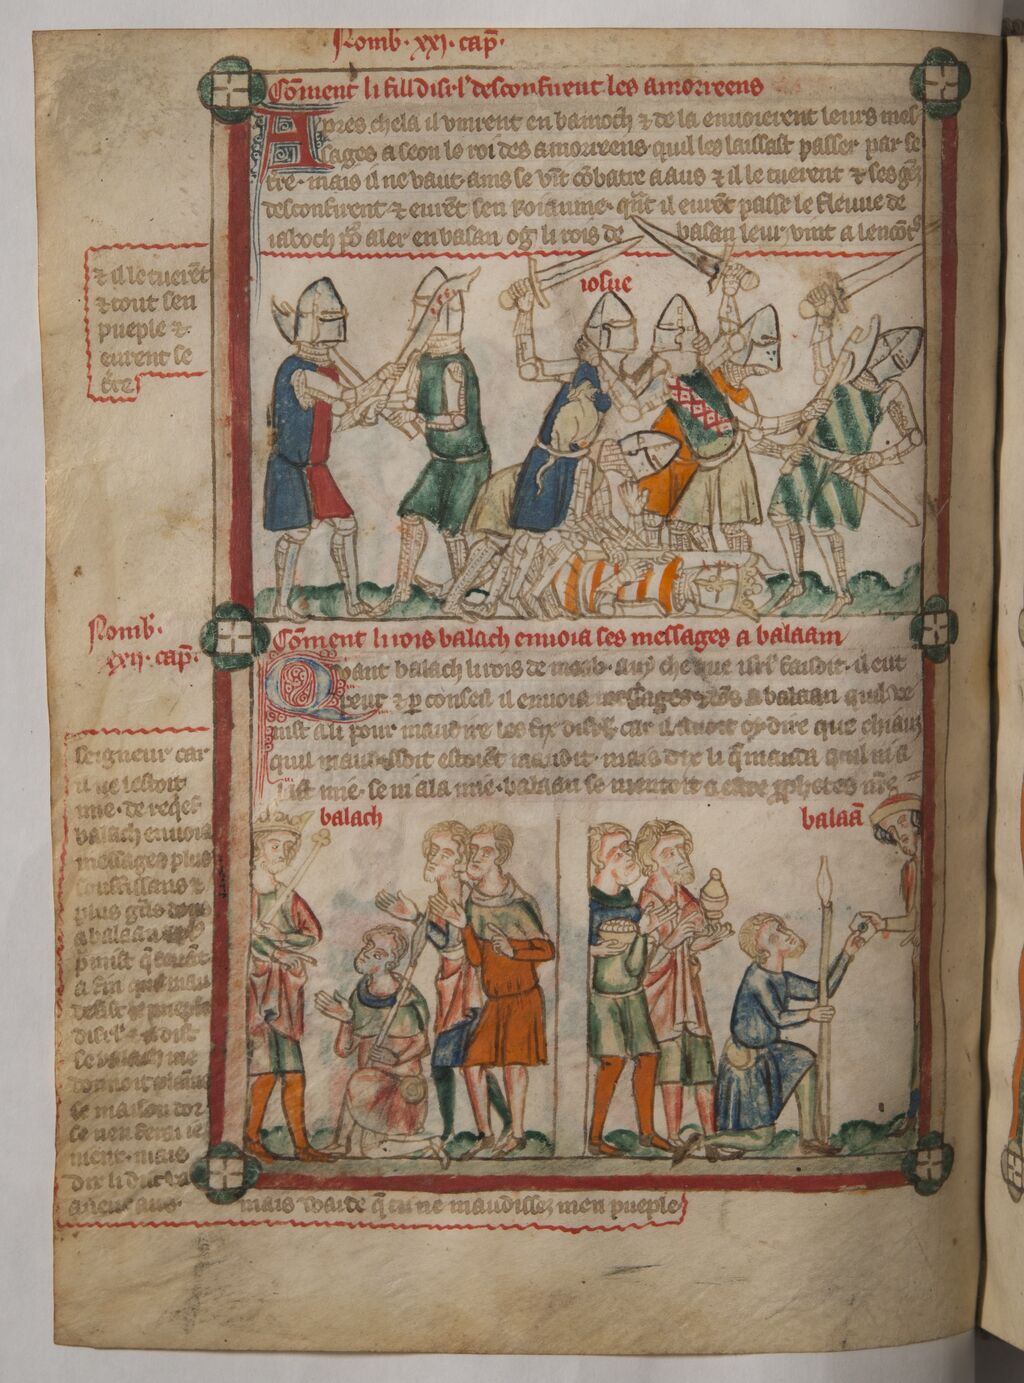 Nomb· xxi· cap̄·
Cōment li fill disrł desconfirent les amorreens
Apres chela il vinrent en bamoch ⁊ de la enuoierent leurs mes
sages a seon le roi des amorreens quil les laissast passer par se
tre· mais il ne vaut ains se vīt cōbatre a aus ⁊ il le tuerent ⁊ ses gēs
desconfirent ⁊ eurēt sen roiaume· qn̄t il eurēt passe le fleuue de
iaboch po᷑ aler en basan og li rois de basan leur vint a lencōt᷑
⁊ il le tuerēt
⁊ tout sen
pueple ⁊
eurent se
tre
iosue
Nomb·
xxii· cap̄·
Cōment li rois balach enuoia ses messages a balaam
Quant balach li rois de moab· auy che que isrł faisoit· il eut
peur ⁊ p conseil il enuoia messages a balaan quil ve
nist a li pour maudire les fix disrł· car il auoit oy dire que chiaus
quil maudissoit estoiēt maudit· mais dix li q̄ manda quil ni a
last mie· se ni ala mie· balaan se mentoit a estre pphetes n̄re
seigneur car
il ne lestoit
mie· de rechief
balach enuoia
messages plus
souffissans ⁊
plus gn̄s dons
a balaan
disrł· ⁊ il dist
se balach me
donnoit plaine
se maison dor·
mais
dix li dist
auenc aus·
mais warde q̄ tu ne maudisses men pueple
balach
balaā